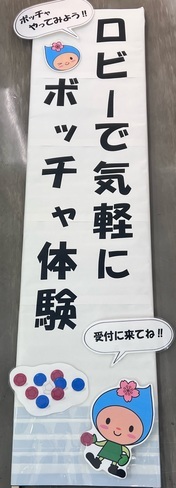 ボッチャ
やってみよう!!
ロビーで気軽に
ボッチャ体験
受付に来てね!!